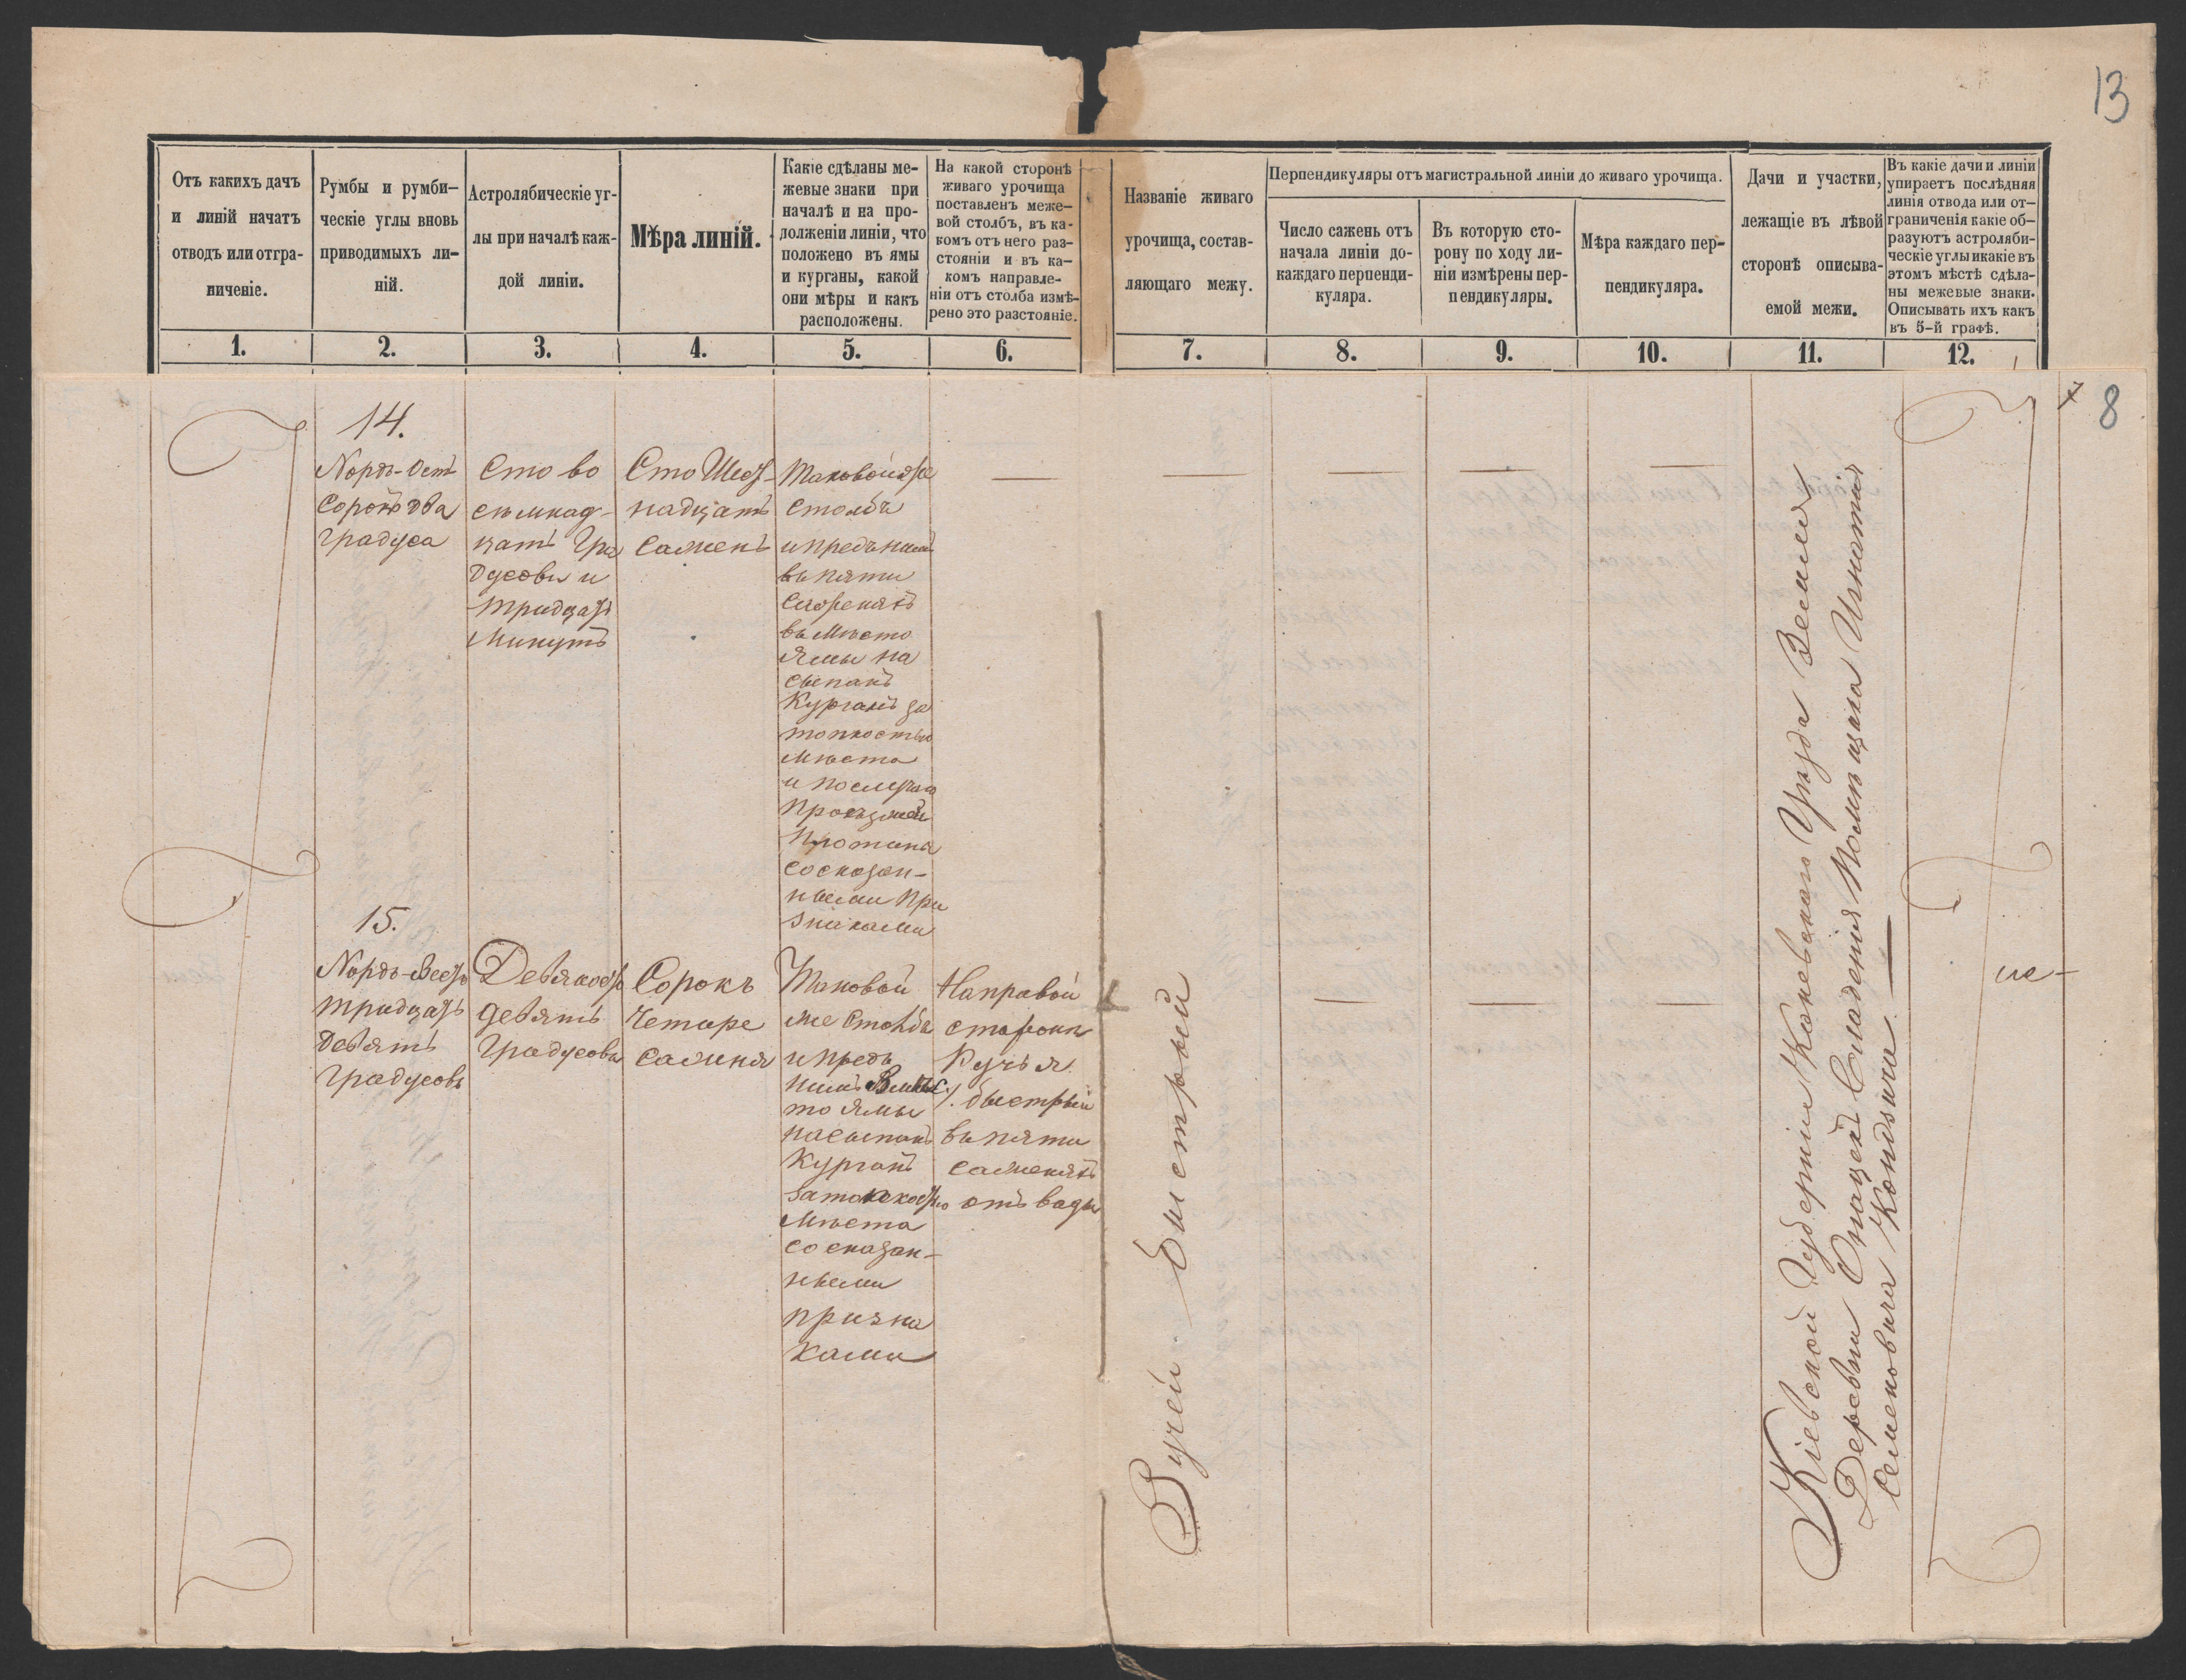 13
Отъ какихъ дачъ
и линій начатъ
отводъ или отгра-
ниченіе.
Румбы и румби-
ческіе углы вновь
приводимыхъ ли-
ній.
Астролябическіе уг-
лы при началѣ каж-
дой линіи.
Мѣра линій.
Какіе сдѣланы ме-
жевые знаки при
началѣ и на про-
должении линіи, что
положено въ ямы
и курганы, какой
они мѣры и какъ
расположены.
На какой сторонѣ
живаго урочища
поставленъ меже-
вой столбъ, въ ка-
комъ отъ него раз-
стояніи и въ ка-
комъ направле-
ніи отъ столба измѣ-
рено это разстояніе.
Названіе живаго
урочища, состав-
ляющаго межу.
Перпендикуляры отъ магистральной линіи до живаго урочища.
Число сажень отъ
начала линіи до-
каждаго перпенди-
куляра.
Въ которую сто-
рону по ходу ли-
ніи измѣрены пер-
пендикуляры.
Мѣра каждаго пер-
пендикуляра.
Дачи и участки,
лежащіе въ лѣвой
сторонѣ описыва-
емой межи.
Въ какіе дачи и линіи
упираетъ послѣдняя
линія отвода или от-
граниченія какіе об-
разуютъ астроляби-
ческіе углы и какіе въ
этомъ мѣстѣ сдѣла-
ны межевые знаки.
Описывать ихъ какъ
въ 5-й графѣ.
1. 2. 3. 4. 5. 6. 7. 8. 9. 10. 11. 12.
8
14.
Нордъ-Остъ
Сорокъ два
градуса
Сто во
семнад-
цать Гра
дусовъ и
тридцать
минутъ
Сто Шест-
надцать
Саженъ
Таковой же
столбъ
и предъ нимъ
въ пяти
саженяхъ
въ мѣсто
ямы на
сыпанъ
Курганъ за
топкостью
мѣста
и после чего
Протина
со сказан-
ными при
знаками
15.
Нордъ-Вестъ
тридцать
девять
градусовъ
Девяносто
девять
Градусовъ
Сорокъ
четыре
сажня
Таковой
же столбъ
и предъ
нимъ Вмѣс
то ямы
насыпанъ
Курганъ
за топкостью
мѣста
со сказан-
ными
призна
ками
На правой
сторонѣ
Ручья
быстрый
въ пяти
саженяхъ
отъ воды
Ручей быстрый
Кіевской Губерніи Каневскаго Уѣзда Земля
Деревни Владенія Помѣщика Игнатія
Семеновича
на-